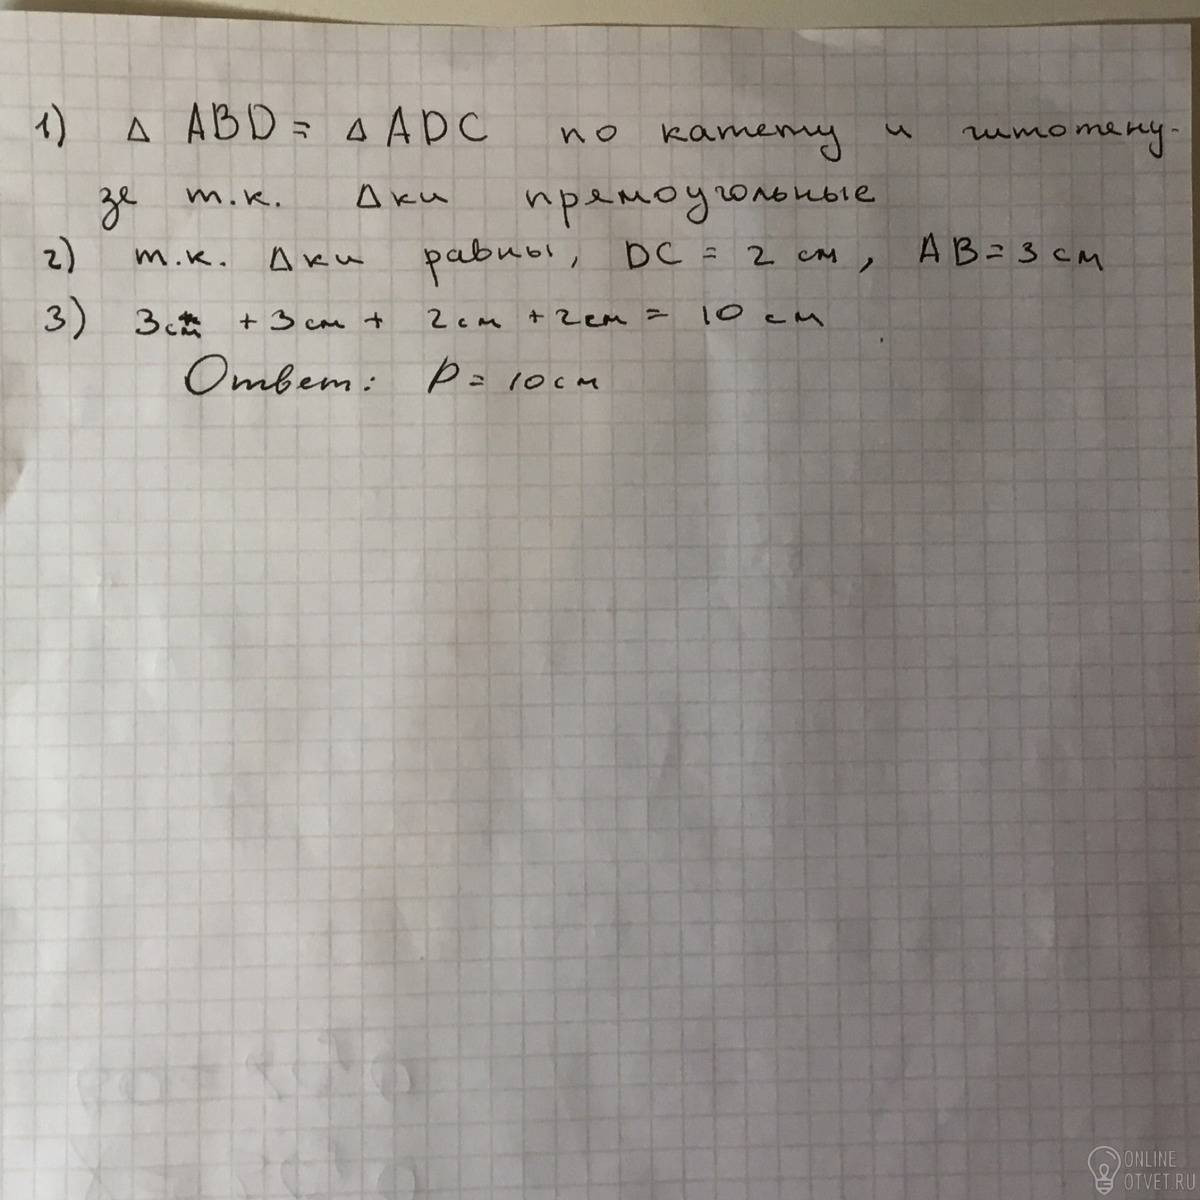 1) Δ ABD = Δ ADC по катету и гипотену-
зе т.к. Δки прямоугольные
2) т.к. Δки равны, DC = 2 см, AB = 3 см
3) 3см + 3 см + 2 см + 2 см = 10 см
Ответ: P = 10 см
ONLINE
OTVET.RU